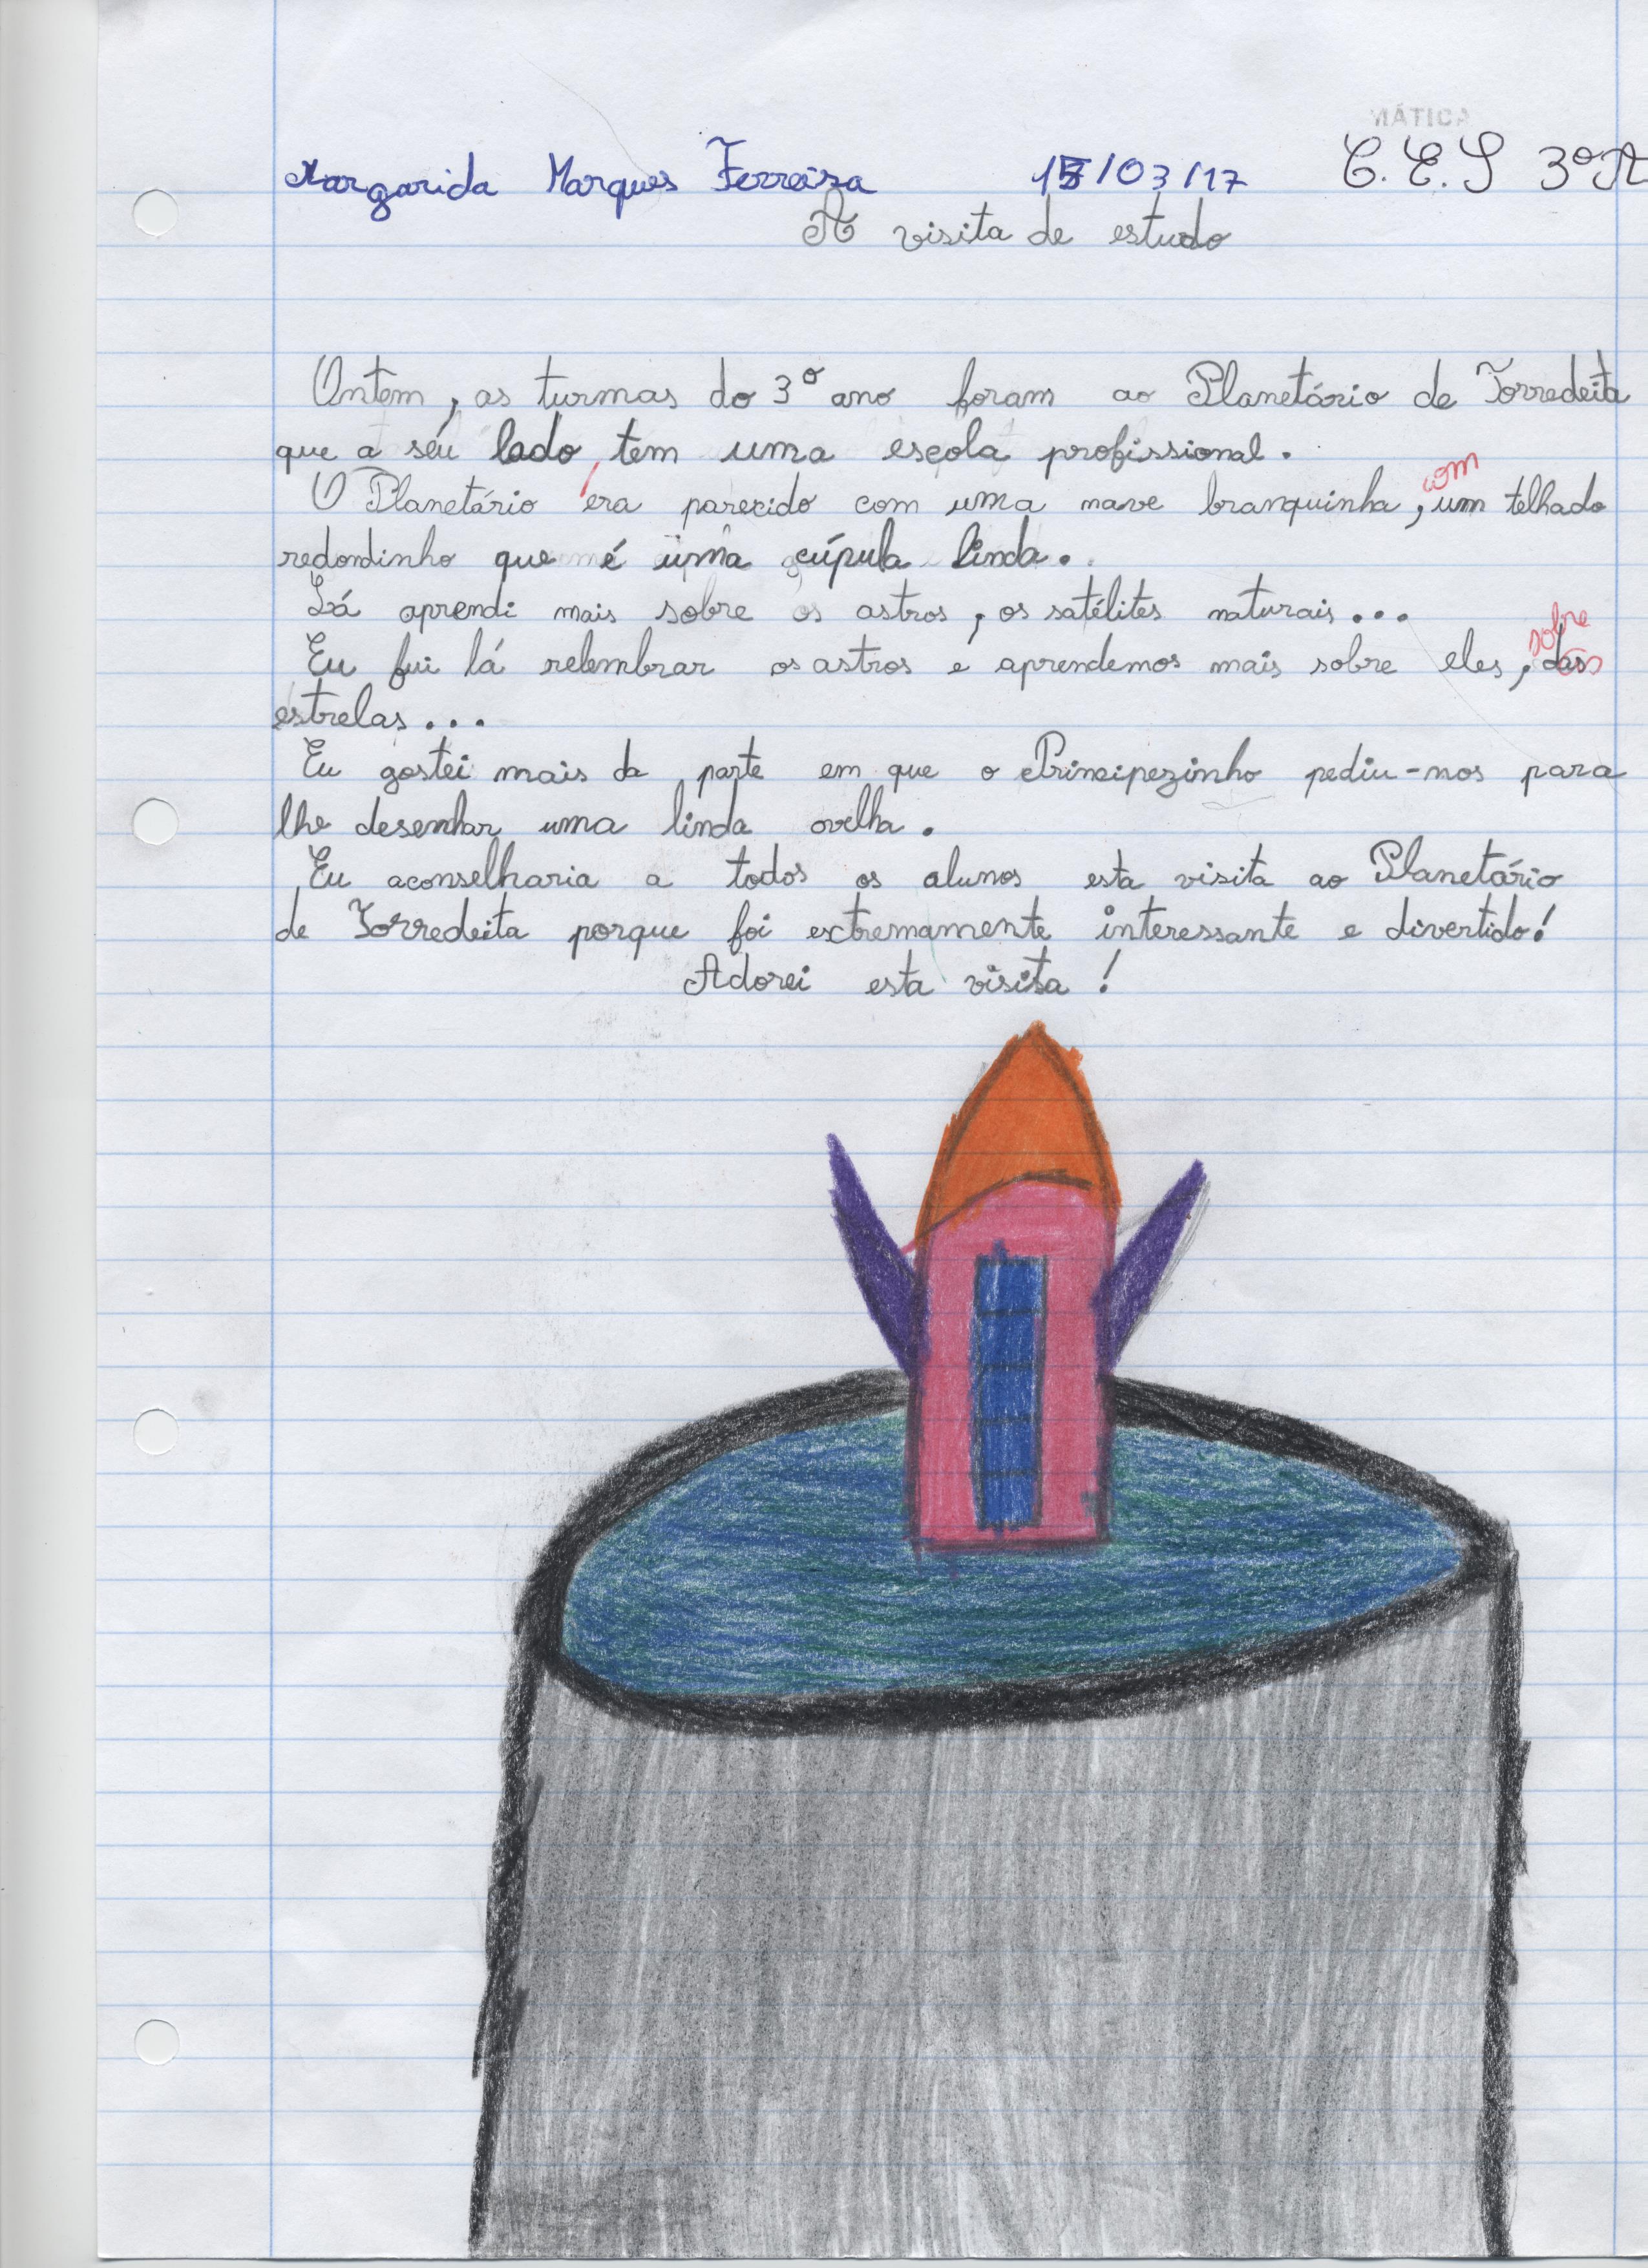 MÁTICA
Margarida Marques Ferreira 15/03/17 C.E.S 3ºA
A visita de estudo
Ontem, as turmas do 3º ano foram ao Planetário de Torredeita
que a seu lado, tem uma escola profissional.
com
O Planetário era parecido com uma nave branquinha, um telhado
redondinho que é uma cúpula linda.
Lá aprendi mais sobre os astros, os satélites naturais...
sobre
Eu fui lá relembrar os astros e aprendemos mais sobre eles, das
estrelas...
Eu gostei mais da parte em que o Principezinho pediu-nos para
lhe desenhar uma linda ovelha.
Eu aconselharia a todos os alunos esta visita ao Planetário
de Torredeita porque foi extremamente interessante e divertido!
Adorei esta visita!